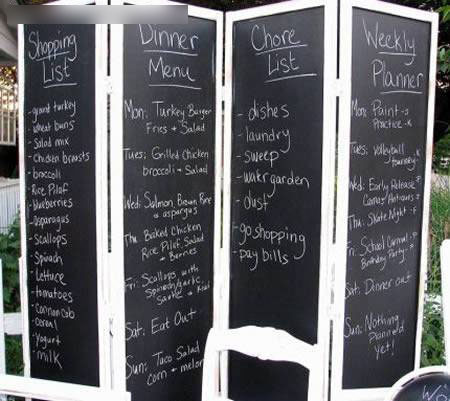 Shopping
List
-ground turkey
-wheat buns
-Salad mix
-Chicken breasts
-broccoli
-Rice Pilaf
-blueberries
-asparagus
-Scallops
-Spinach
-Lettuce
-tomatoes
-Corn on cob
-cereal
-yogurt
-milk
Dinner
Menu
Mon: Turkey Burger
Fries + Salad
Tues: Grilled Chicken
broccoli + Salad
Wed: Salmon, Brown Rice
+ asparagus
Thu: Baked Chicken
Rice Pilaf, Salad
+ Berries
Fri: Scallops with
Spinach/garlic
Sauté +
Sat: Eat Out
Sun: Taco Salad
Corn + melon
Chore
List
- dishes
- laundry
- sweep
- water garden
- dust
- go shopping
- pay bills
Weekly
Planner
Mon: Paint -s
Practice -K
Tues: Volleyball
tourney -K
Wed: Early Release
Games/Antiques
Thu: Skate Night -K
Fri: School Carnival -K
Birthday Party -K
Sat: Dinner out
Sun: Nothing
Planned
yet!